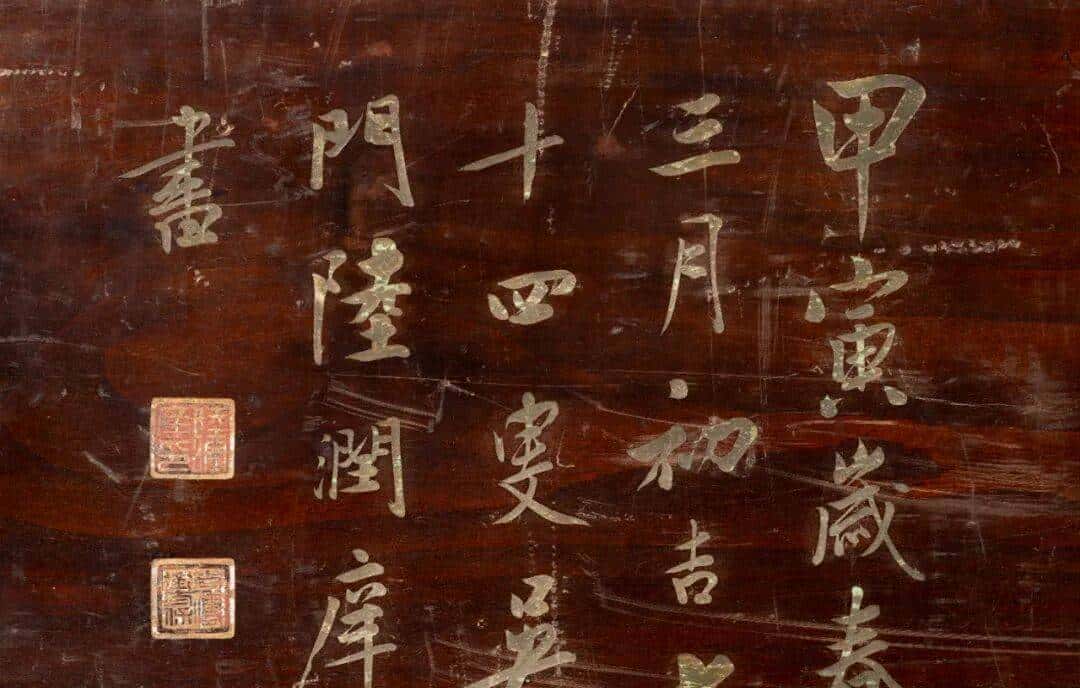 甲寅歲春
三月初吉
十四叟吳
門陸潤庠
書